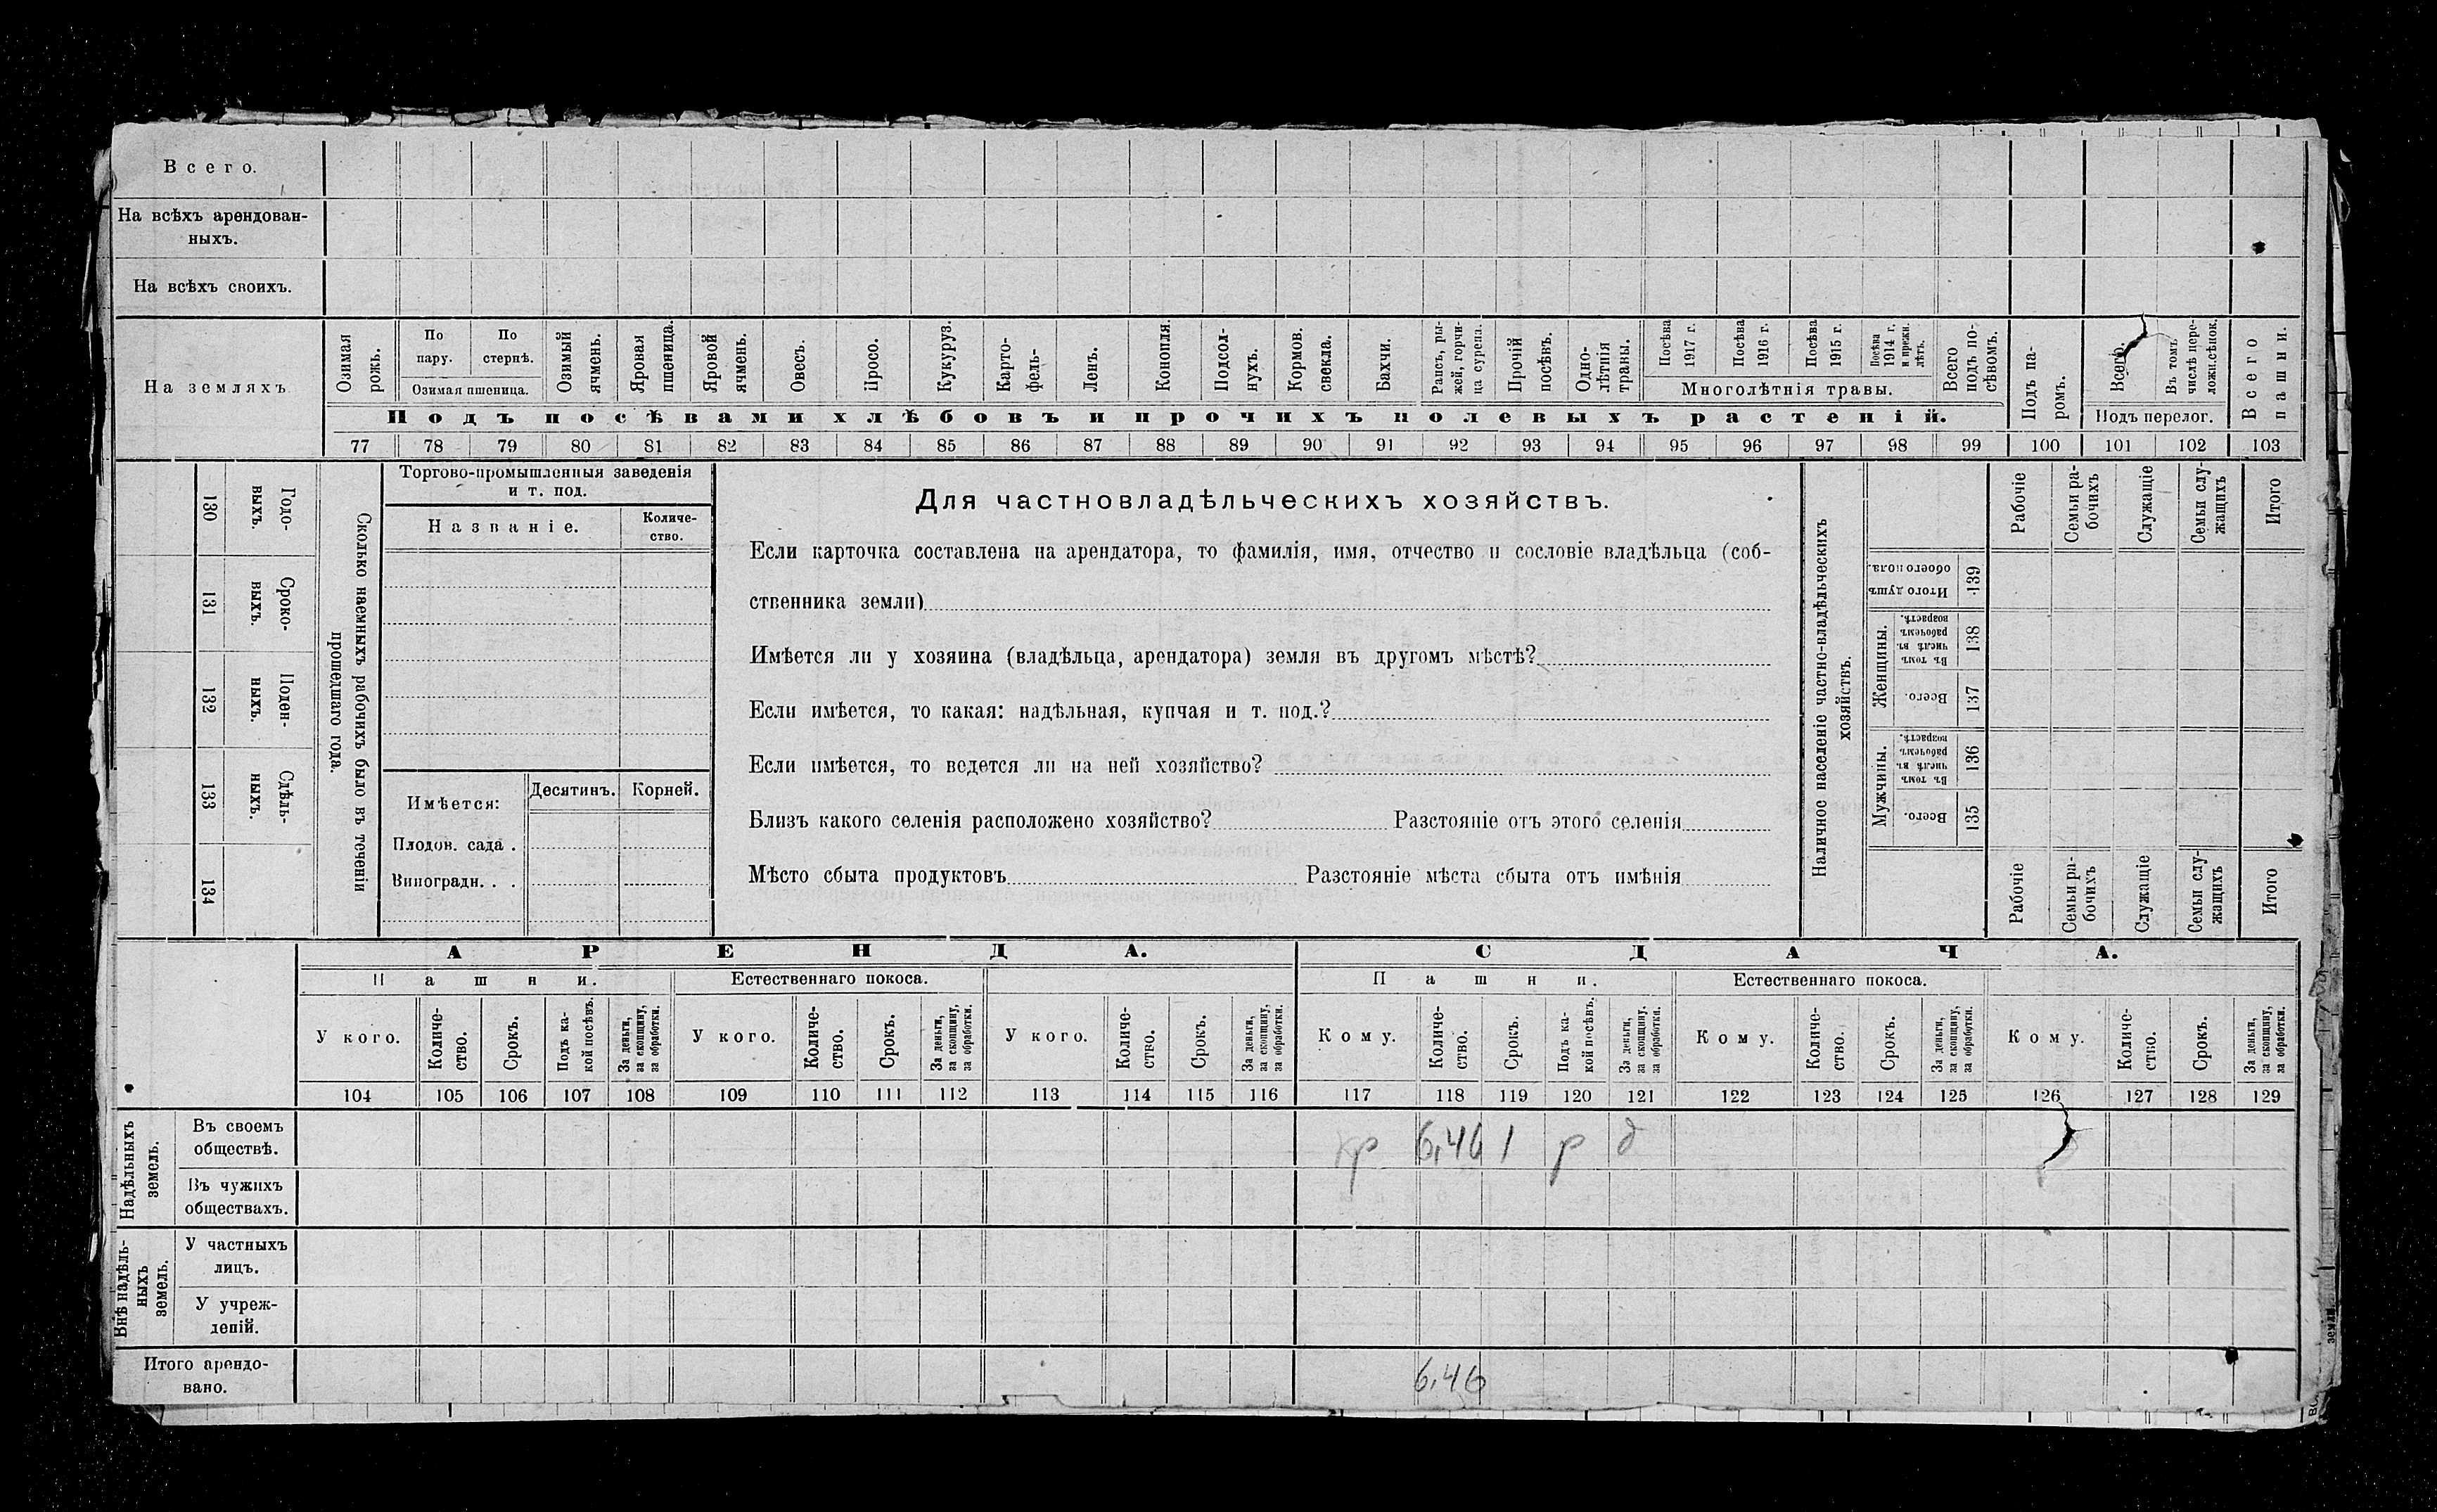 Всего.
На всѣхъ арендован-
ныхъ.
На всѣхъ своихъ.
На земляхъ
Озимая рожь.
По пару.
По стернѣ.
Озимая пшеница.
Озимый ячмень.
Яровая пшеница.
Яровой ячмень.
Овесъ.
Просо.
Кукуруз.
Карто-
фель-
Ленъ.
Конопля.
Подсол-
нухъ.
Кормов. свекла.
Бахчи.
Рапсъ, ры-
жей, горчи-
ца сурепа.
Прочій посѣвъ.
Одно-
лѣтнія травы.
Посѣва 1917 г.
Посѣва 1916 г.
Посѣва 1915 г.
Посѣва 1914 г. и прежн. лѣтъ.
Многолѣтнія травы.
Всего подъ по-
сѣвомъ.
Подъ посѣвами хлѣбовъ и прочихъ полевыхъ растеній.
Подъ па-
ромъ.
Всего.
Въ томъ числѣ пере-
ложн.сѣнок.
Подъ перелог.
Всего пашни.
77 78 79 80 81 82 83 84 85 86 87 88 89 90 91 92 93 94 95 96 97 98 99 100 101 102 103
130 Годо-
выхъ.
131 Сроко-
ныхъ.
132 Поден-
ныхъ.
133 Сдѣль-
ныхъ.
134
Сколько наемныхъ рабочихъ было въ теченіи
прошедшаго года.
Торгово-промышленныя заведенія
и т. под.
Названіе.
Количе-
ство.
Имѣется:
Десятинъ.
Корней.
Плодов. сада .
Виноградн. . .
Для частновладѣльческихъ хозяйствъ.
Если карточка составлена на арендатора, то фамилія, имя, отчество и сословіе владѣльца (соб-
ственника земли)
Имѣется ли у хозяина (владѣльца, арендатора) земля въ другомъ мѣстѣ?
Если имѣется, то какая: надѣльная, купчая и т. под.?
Если имѣется, то ведется ли на ней хозяйство?
Близъ какого селенія расположено хозяйство? Разстояніе отъ этого селенія
Мѣсто сбыта продуктовъ Разстояніе мѣста сбыта отъ имѣнія
Наличное населеніе частно-владѣльческихъ
хозяйствъ.
Рабочіе
Семьи ра-
бочихъ
Служащіе
Семьи слу-
жащихъ
Итого
Итого душъ обоего пола. 139
Женщины.
Въ томъ числѣ въ рабочемъ возрастѣ. 138
Всего. 137
Мужчины.
Въ томъ числѣ въ рабочемъ возрастѣ. 136
Всего. 135
Рабочіе
Семьи ра-
бочихъ
Служащіе
Семьи слу-
жащихъ
Итого
АРЕНДА.
СДАЧА.
Пашни.
Естественнаго покоса.
Пашни.
Естественнаго покоса.
У кого.
Количе-
ство.
Срокъ.
Подъ ка-
кой посѣвъ.
За деньги, за скопщину, за обработки.
У кого.
Количе-
ство.
Срокъ.
За деньги, за скопщину, за обработки.
У кого.
Количе-
ство.
Срокъ.
За деньги, за скопщину, за обработки.
Кому.
Количе-
ство.
Срокъ.
Подъ ка-
кой посѣвъ.
За деньги, за скопщину, за обработки.
Кому.
Количе-
ство.
Срокъ.
За деньги, за скопщину, за обработки.
Кому.
Количе-
ство.
Срокъ.
За деньги, за скопщину, за обработки.
104 105 106 107 108 109 110 111 112 113 114 115 116 117 118 119 120 121 122 123 124 125 126 127 128 129
Надѣльныхъ земель.
Въ своемъ
обществѣ.
кр 6,46 1 р д
Въ чужихъ
обществахъ.
Внѣ надѣль-
ныхъ земель.
У частныхъ
лицъ.
У учреж-
деній.
Итого арендо-
вано.
6,46
земли.